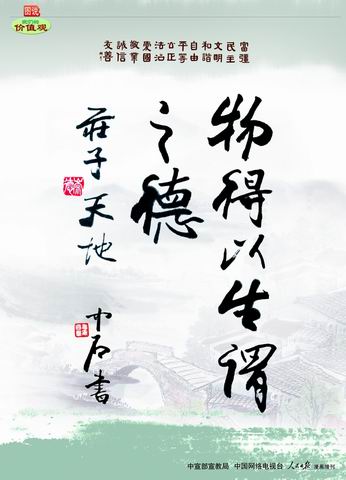 图说
我们的
价值观
富強
民主
文明
和諧
自由
平等
公正
法治
愛國
敬業
誠信
友善
物得以生謂
之德
莊子 天地
中石書
中宣部宣教局 中国网络电视台 人民日报 漫画增刊